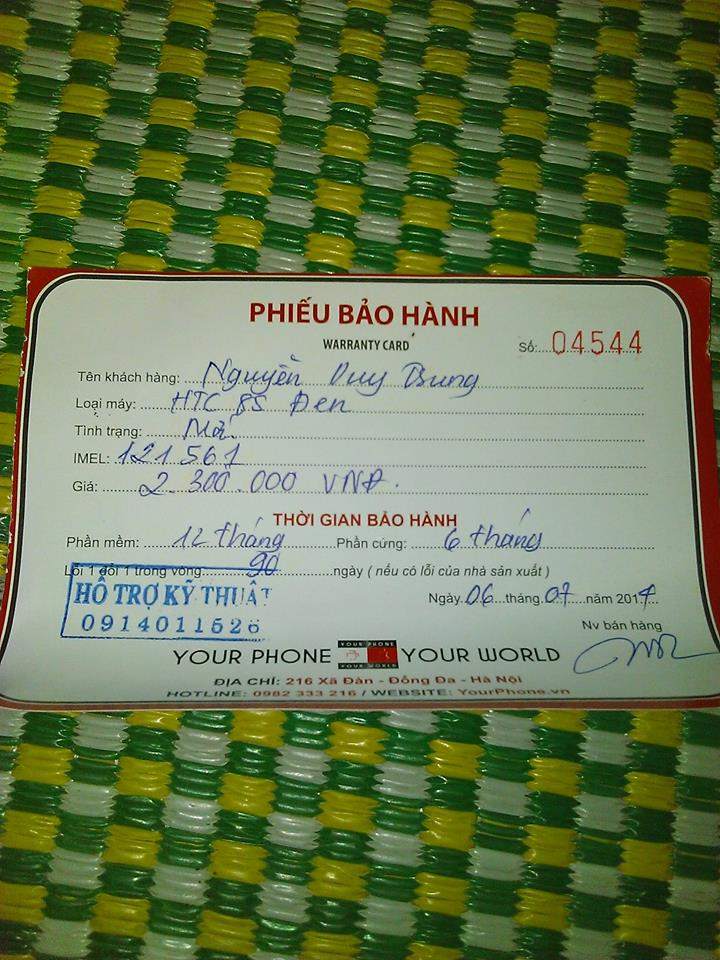 PHIẾU BẢO HÀNH
WARRANTY CARD
Số:....04544
Tên khách hàng: Nguyễn Duy Trung
Loại máy: HTC 8S Đen
Tình trạng: Mới
IMEL: 121561
Giá: 2.300.000 VNĐ.
THỜI GIAN BẢO HÀNH
Phần mềm: 12 tháng Phần cứng: 6 tháng
Lỗi 1 đổi 1 trong vòng: 90 ngày ( nếu có lỗi của nhà sản xuất )
HỖ TRỢ KỸ THUẬT
0914011526
Ngày 06 tháng 07 năm 2014
Nv bán hàng
YOUR PHONE YOUR PHONE YOUR WORLD YOUR WORLD
ĐỊA CHỈ: 216 Xã Đàn - Đống Đa - Hà Nội
HOTLINE: 0982 333 216 / WEBSITE: YourPhone.vn